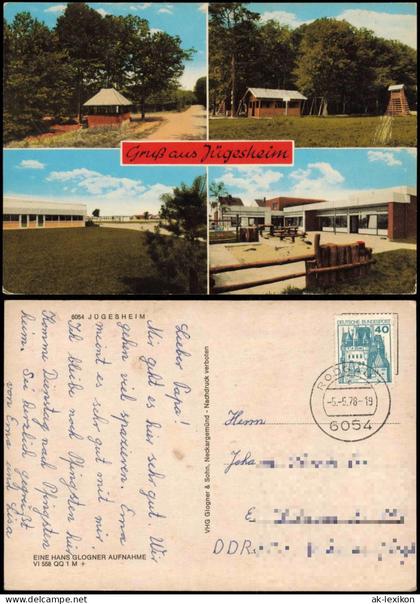 Gruß aus Jügesheim
6054 JÜGESHEIM
Lieber Papa!
Mir geht es hier sehr gut. Wir
gehen viel spazieren. Erna
meint es sehr gut mit mir.
Ich bleibe noch Pfingsten hier
Komme Dienstag nach Pfingsten
heim. Sei herzlich gegrüßt
von Erna und Lisa
EINE HANS GLOGNER AUFNAHME
VI 558 QQ 1 M +
VHG Glogner & Sohn, Neckargemünd - Nachdruck verboten
DEUTSCHE BUNDESPOST
40
-5.-5.78-19
6054
Herrn
DDR
www.ansichtskarten-lexikon.de
ak-lexikon.com